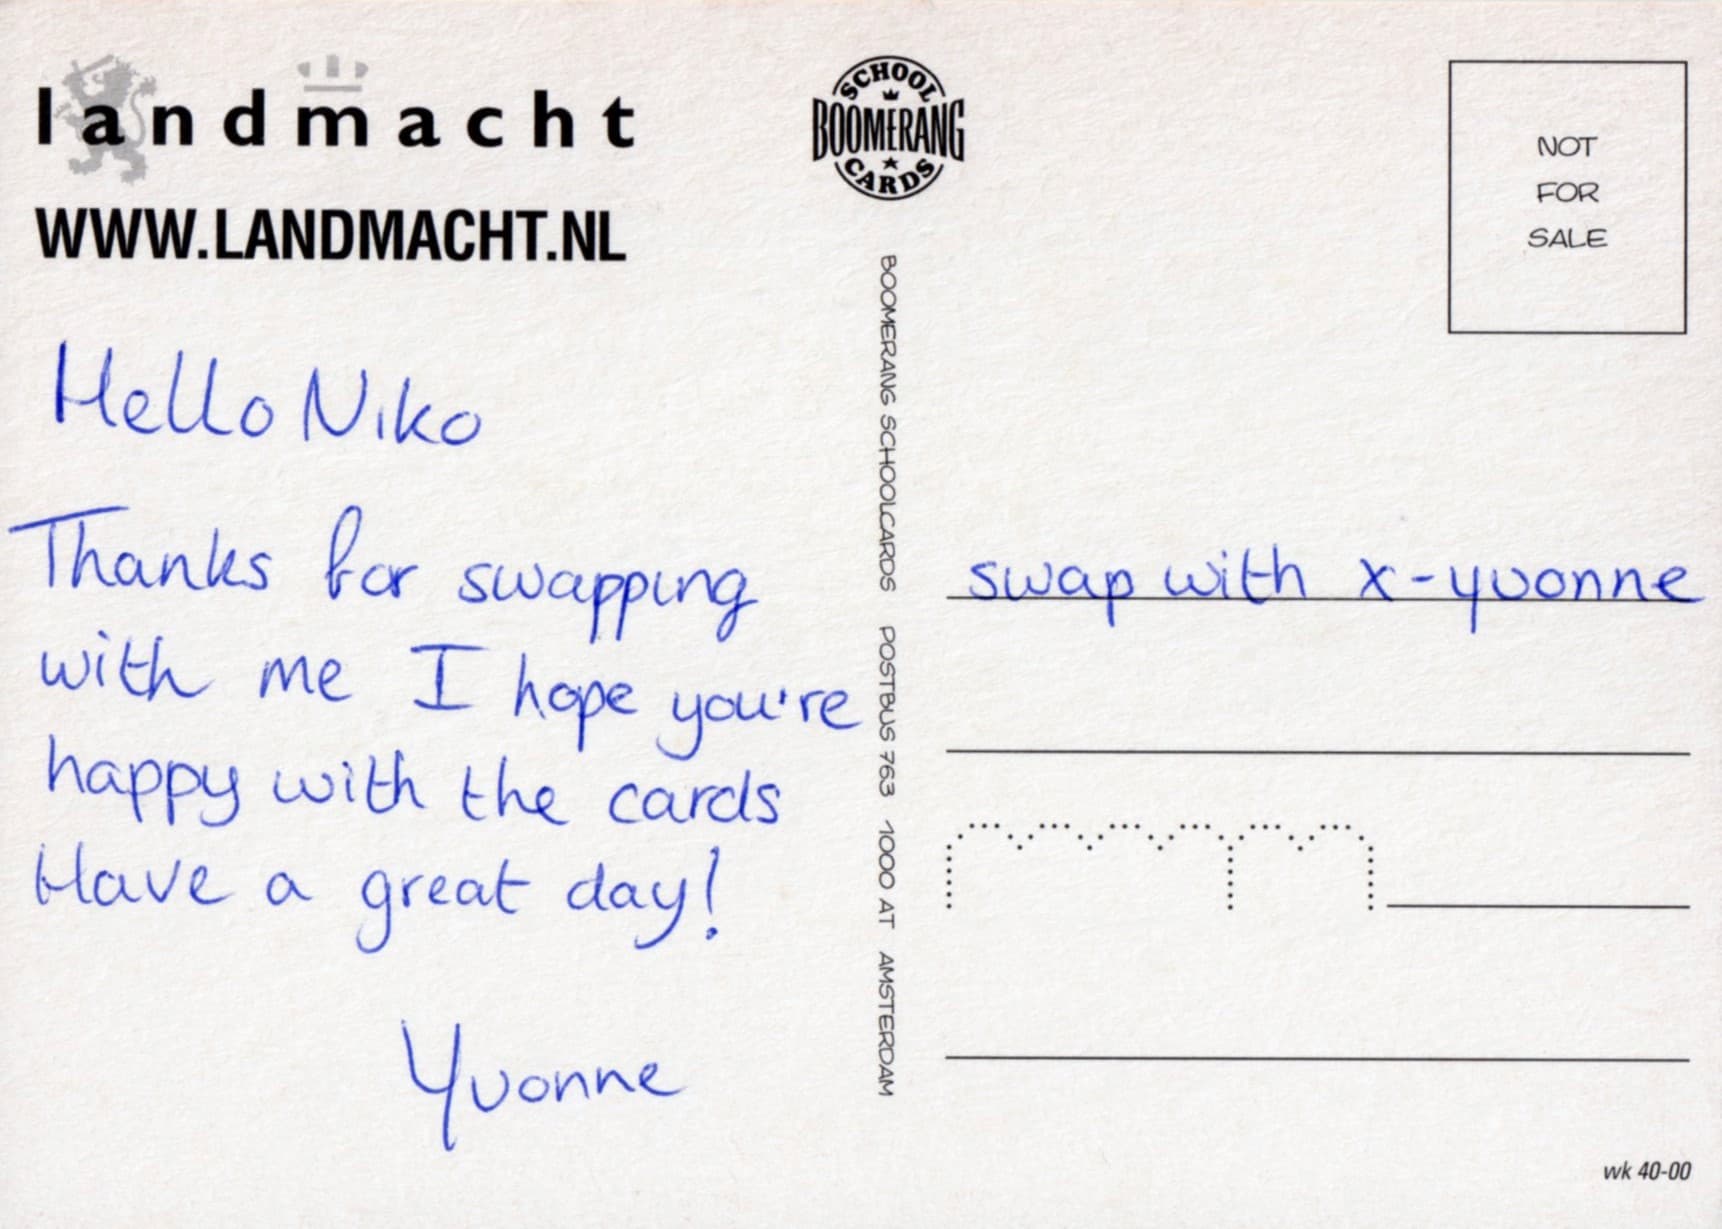 landmacht
WWW.LANDMACHT.NL
Hello Niko
Thanks for swapping
with me I hope you're
happy with the cards
Have a great day!
Yvonne
SCHOOL
BOOMERANG
CARDS
BOOMERANG SCHOOLCARDS POSTBUS 763 1000 AT AMSTERDAM
NOT
FOR
SALE
swap with x-yvonne
wk 40-00